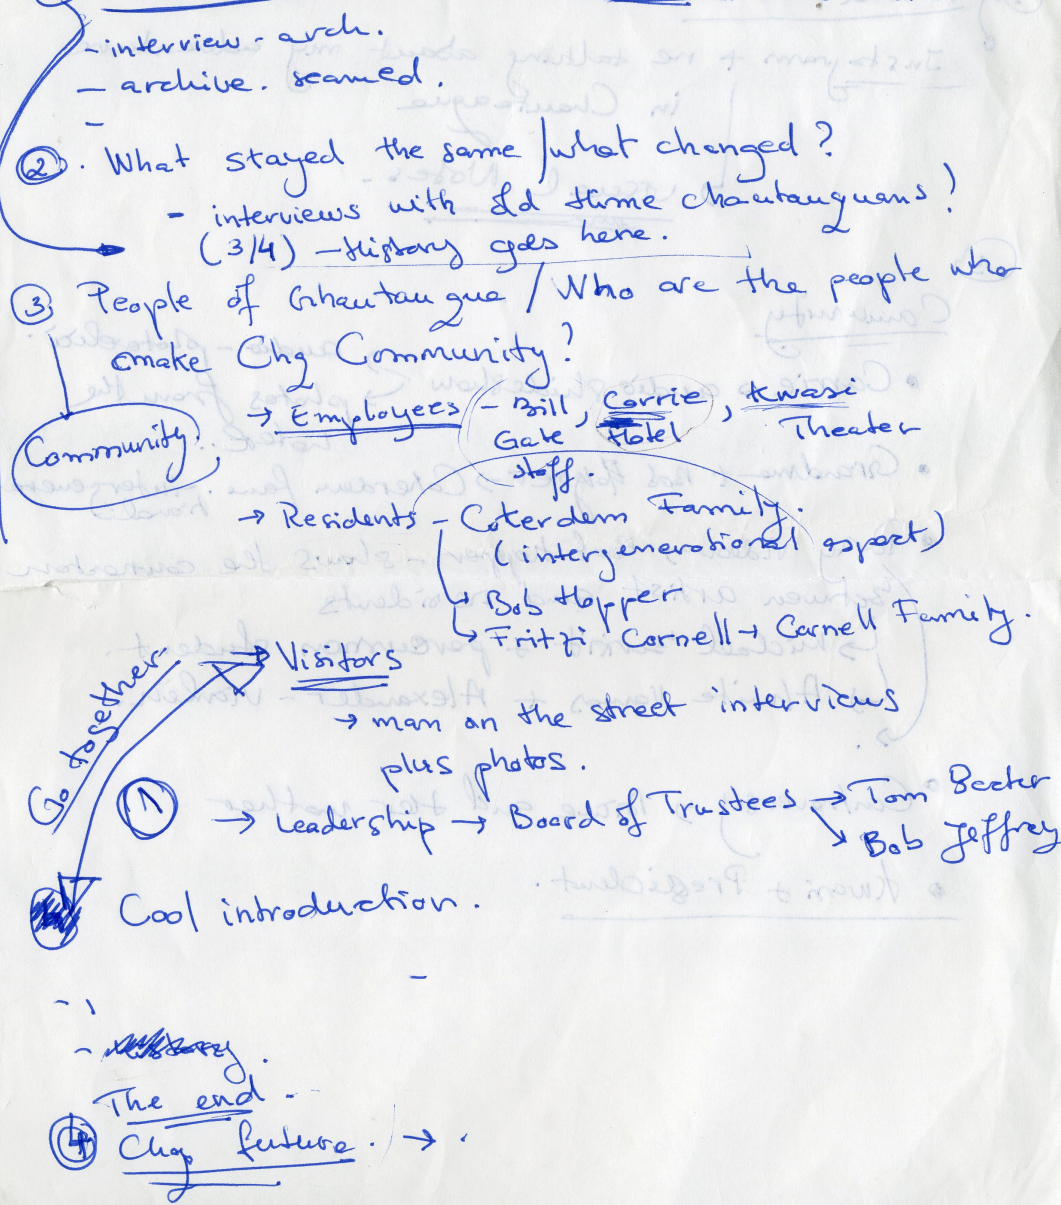 - interview - arch.
- archive. seamed.
-
② . What stayed the same / what changed ?
- interviews with old time chautauquans !
(3/4) - History goes here.
③ People of Chautauqua / Who are the people who
make Chq Community ?
→ Employees - Bill, Corrie, Kwasi
Gate Hotel Theater
staff.
Community.
→ Residents - Coterdem Family.
(intergenerational aspect)
↳ Bob Hopper
↳ Fritzi Cornell → Cornell Family.
Go together
→ Visitors
→ man on the street interviews
plus photos.
①
→ Leadership → Board of Trustees → Tom Becker
↘ Bob Jeffrey
Cool introduction.
-
-
-
The end -
④ Chq future. → .